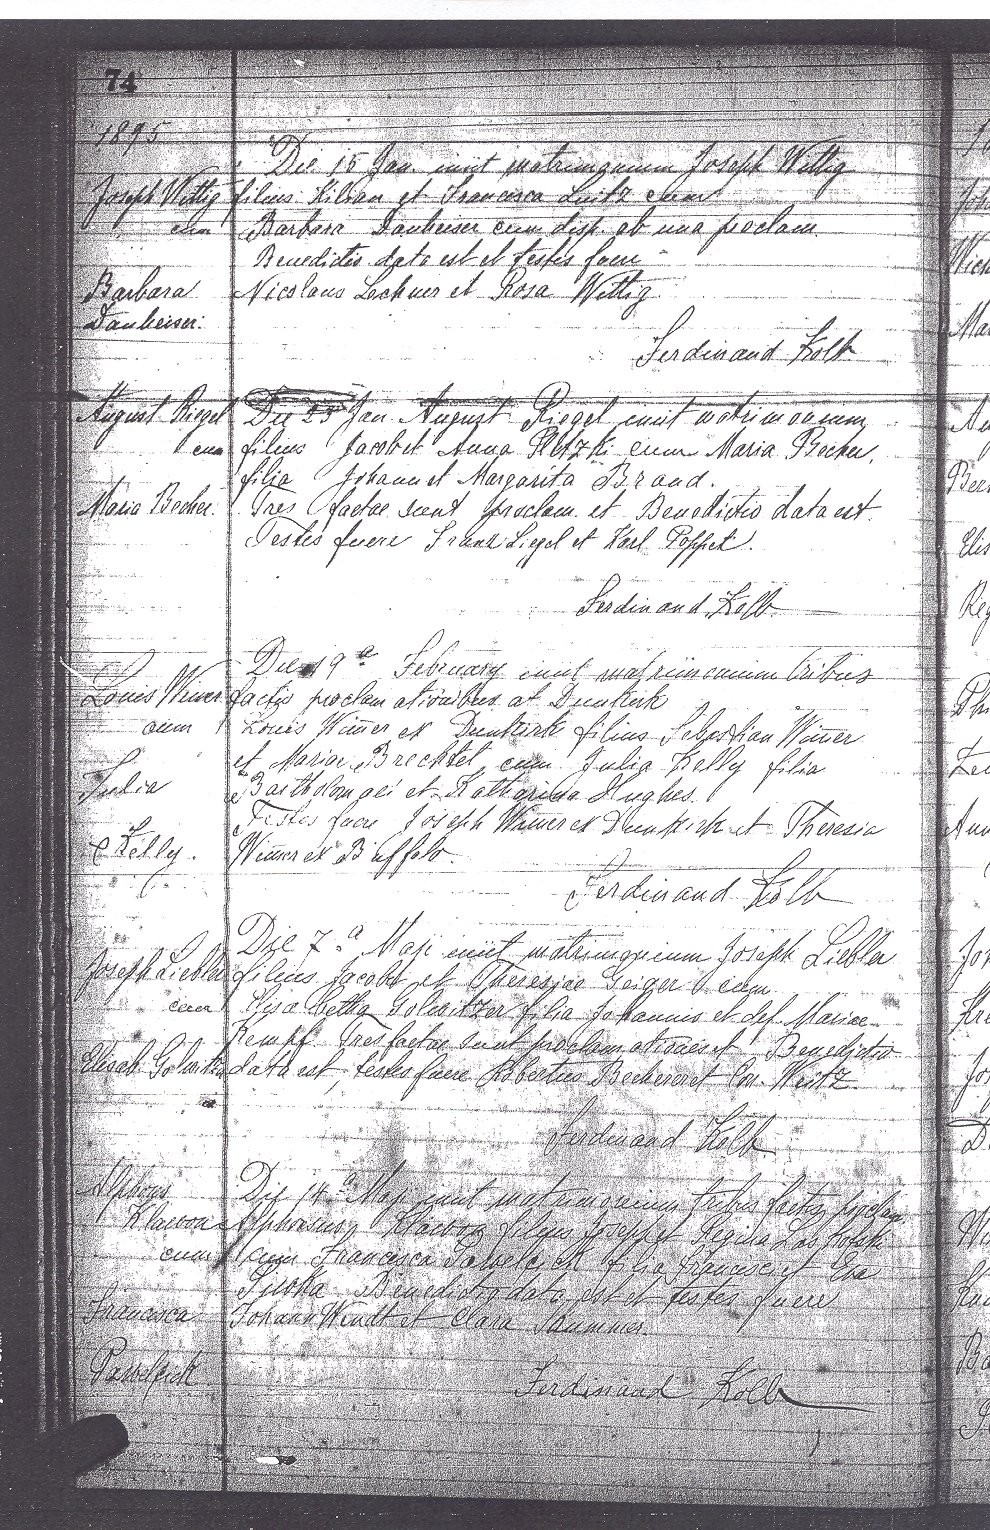 74
1895
Die 15 Jan. iniit matrimonium Joseph Wittig
Joseph Wittig filius Kilian et Francisca Luitz cum
cum Barbara Danheiser cum disp. ab una proclam
Benedictio data est et testes fuere
Barbara Nicolaus Lechner et Rosa Wittig
Danheiser.
Ferdinand Kolb
August Riegel Die 23 Jan August Riegel iniit matrimonium
cum filius Jacob et Anna cum Maria Becher,
filia Johann et Margarita Brand.
Maria Becher. Tres factae sunt proclam. et Benedictio data est.
Testes fuere Franz Liegel et Karl
Ferdinand Kolb
Die 19a February iniit matrimonium tribus
Louis Winer factis proclamationibus at Dunkirk
cum Louis Winer ex Dunkirk filius Sebastian Winer
et Mariae Brechtel, cum Julia Kelly filia
Julia Bartholomaei et Katharina Hughes.
Testes fuere Joseph Winer ex Dunkirk et Theresia
Kelly. Winer ex Buffalo.
Ferdinand Kolb
Die 7.a Maji iniit matrimonium Joseph Liebler
Joseph Liebler filius Jacobi et Theresiae Geiger cum
cum Elisabetha Golwitzer filia Johannis et def. Mariae
Kempf. Tres factae sunt proclamationes et Benedictio
Elisab. data est, testes fuere Robertus et Con. Weitz
Ferdinand Kolb
Alphons Die 14a Maji iniit matrimonium tribus factis proclam.
Klawon Alphonsus Klawon filius Joseph et Regina
cum cum Francisca filia Francisci et Eva
Benedictio data est et testes fuere
Francisca Johann Wendt et Clara
Ferdinand Kolb